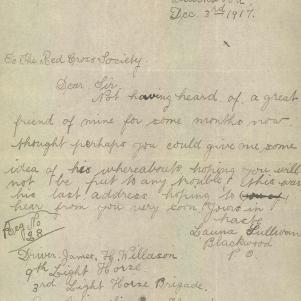 Blackwood
Dec. 3rd 1917.
To The Red Cross Society.
Dear Sir,
Not having heard of a great
friend of mine for some months now
thought perhaps you could give me some
idea of his whereabouts hoping you will
not be put to any trouble this was
his last address hoping to
hear from you very soon yours in
haste
Launa Sullivan
Blackwood
P O
Reg No
28
Driver James, H, Killason
9th Light Horse
3rd Light Horse Brigade.